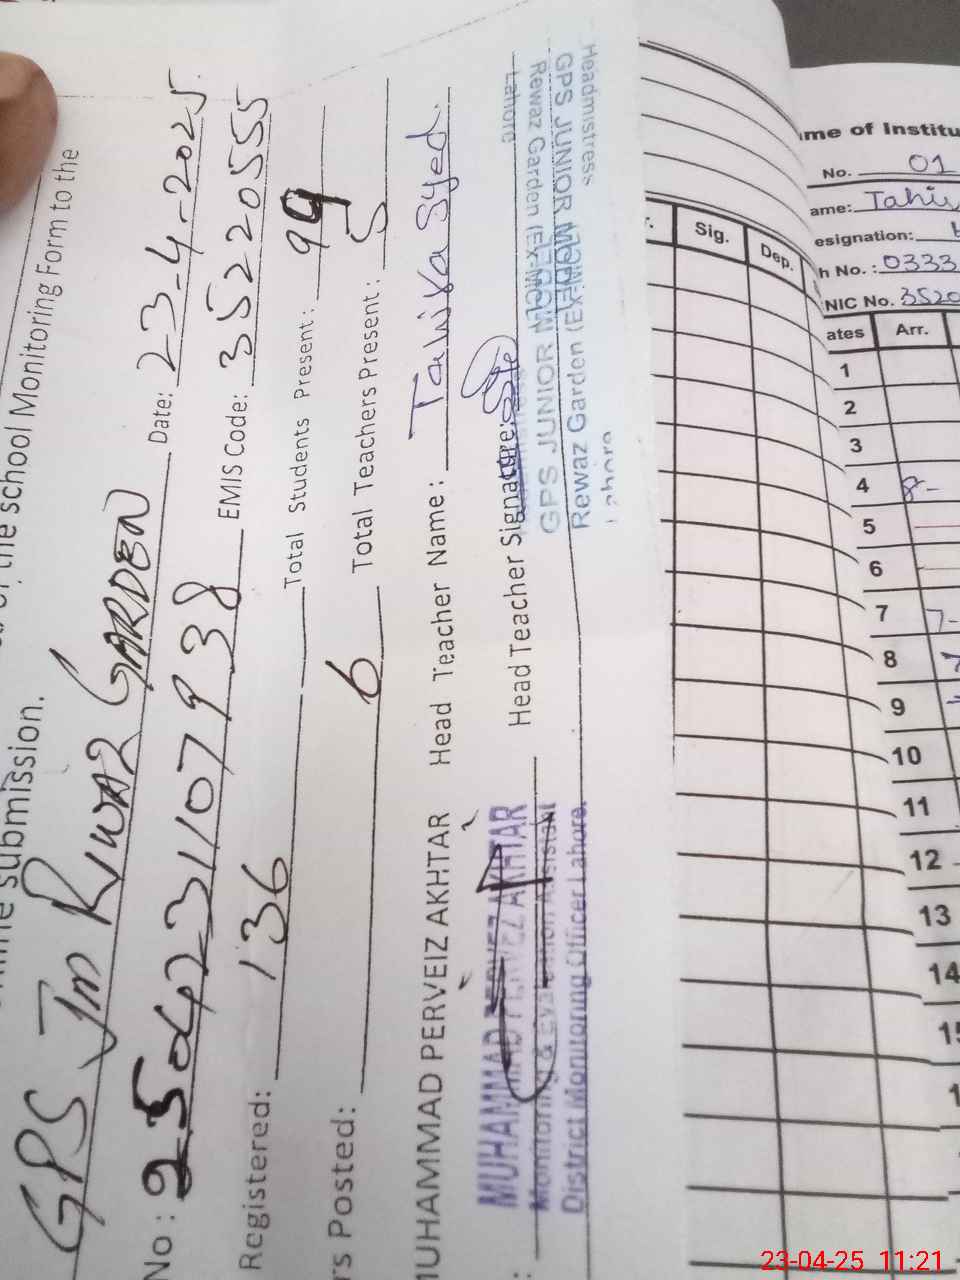 the school Monitoring Form to the
submission.
GPS Jm RIWAZ GARDEN Date: 23-4-2025.
No : 2504231107938 EMIS Code: 35220555
Registered: 136 Total Students Present: 99
rs Posted: 6 Total Teachers Present: 5
MUHAMMAD PERVEIZ AKHTAR Head Teacher Name: Syed
Head Teacher Signature:
MUHAMMAD PERVEZ AKHTAR
Monitoring & Evaluation Assistant
District Monitoring Officer Lahore.
GPS JUNIOR MODEL
Rewaz Garden (Ex-
Lahore
Headmistress
GPS JUNIOR MODEL
Rewaz Garden (Ex-MCL)
Lahore
Sig. Dep.
me of Institu
No. 01
ame: Tahir
esignation:
h No.: 0333
NIC No. 3520
ates Arr.
1
2
3
4 8-
5
6
7 7-
8
9
10
11
12
13
14
23-04-25 11:21